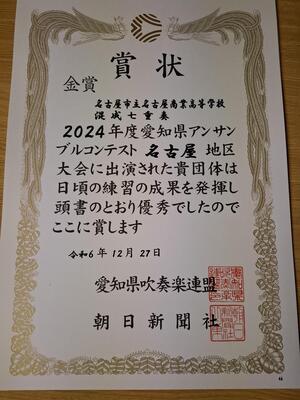 賞状
金賞
名古屋市立名古屋商業高等学校
混成七重奏
2024年度愛知県アンサン
ブルコンテスト 名古屋 地区
大会に出演された貴団体は
日頃の練習の成果を発揮し
頭書のとおり優秀でしたので
ここに賞します
令和6年12月27日
愛知県吹奏楽連盟
朝日新聞社